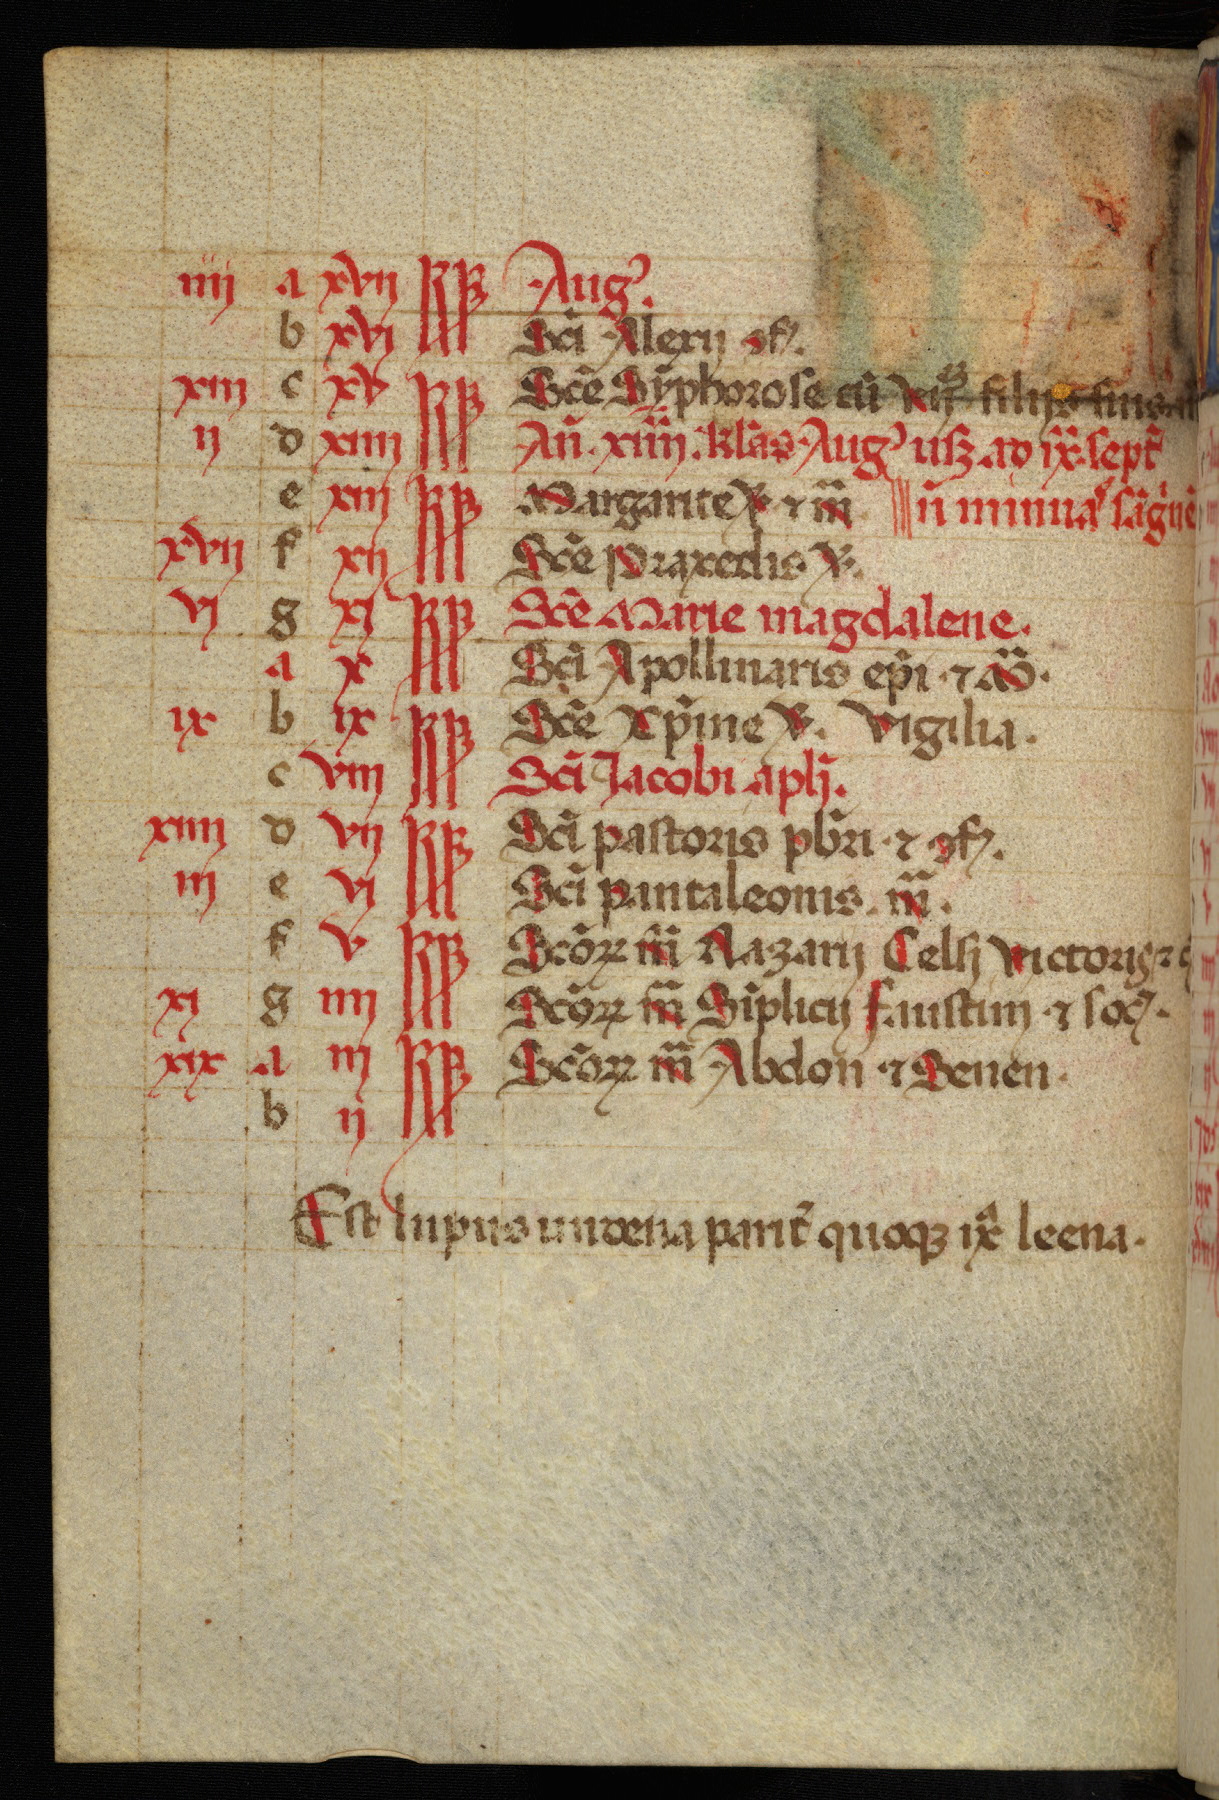 iiii a xvii kł Aug᷒.
b xvi kł Sci᷒ Alexij ɔf᷒.
xiii c xv kł Sce᷒ Sy̅phorose cu̅ vij filijs suis
ii d xiiii kł An̅. xiiii. kl̅as Aug᷒ usꝫ ad ix. sept᷒
e xiii kł Margarite v. ⁊ m̅ n̅ minua᷒ sa̅g᷒ne̅
xvii f xii kł Sce̅ Praxedis v.
vj g xj kł Sce̅ Marie magdalene.
a x kł Sci̅ Apollinaris ep̅i ⁊ m̅.
ix b ix kł Sce̅ Xp̅ine v. vigilia.
c viii kł Sci̅ Jacobi apl̅i.
xiiii d vii kł Sci̅ pastoris pb̅ri ⁊ ɔf᷒.
iii e vi kł Sci̅ pantaleonis. m̅.
f v kł Sco̅ꝝ m̅ Nazarij Celsi victoris ⁊
xj g iiii kł Sco̅ꝝ m̅ Si̅plicij faustini ⁊ soc᷒.
xix a iii kł Sco̅ꝝ m̅ Abdon ⁊ Senen.
b ij kł
Est lupus undena parit᷒ quoqꝫ ixa leena.